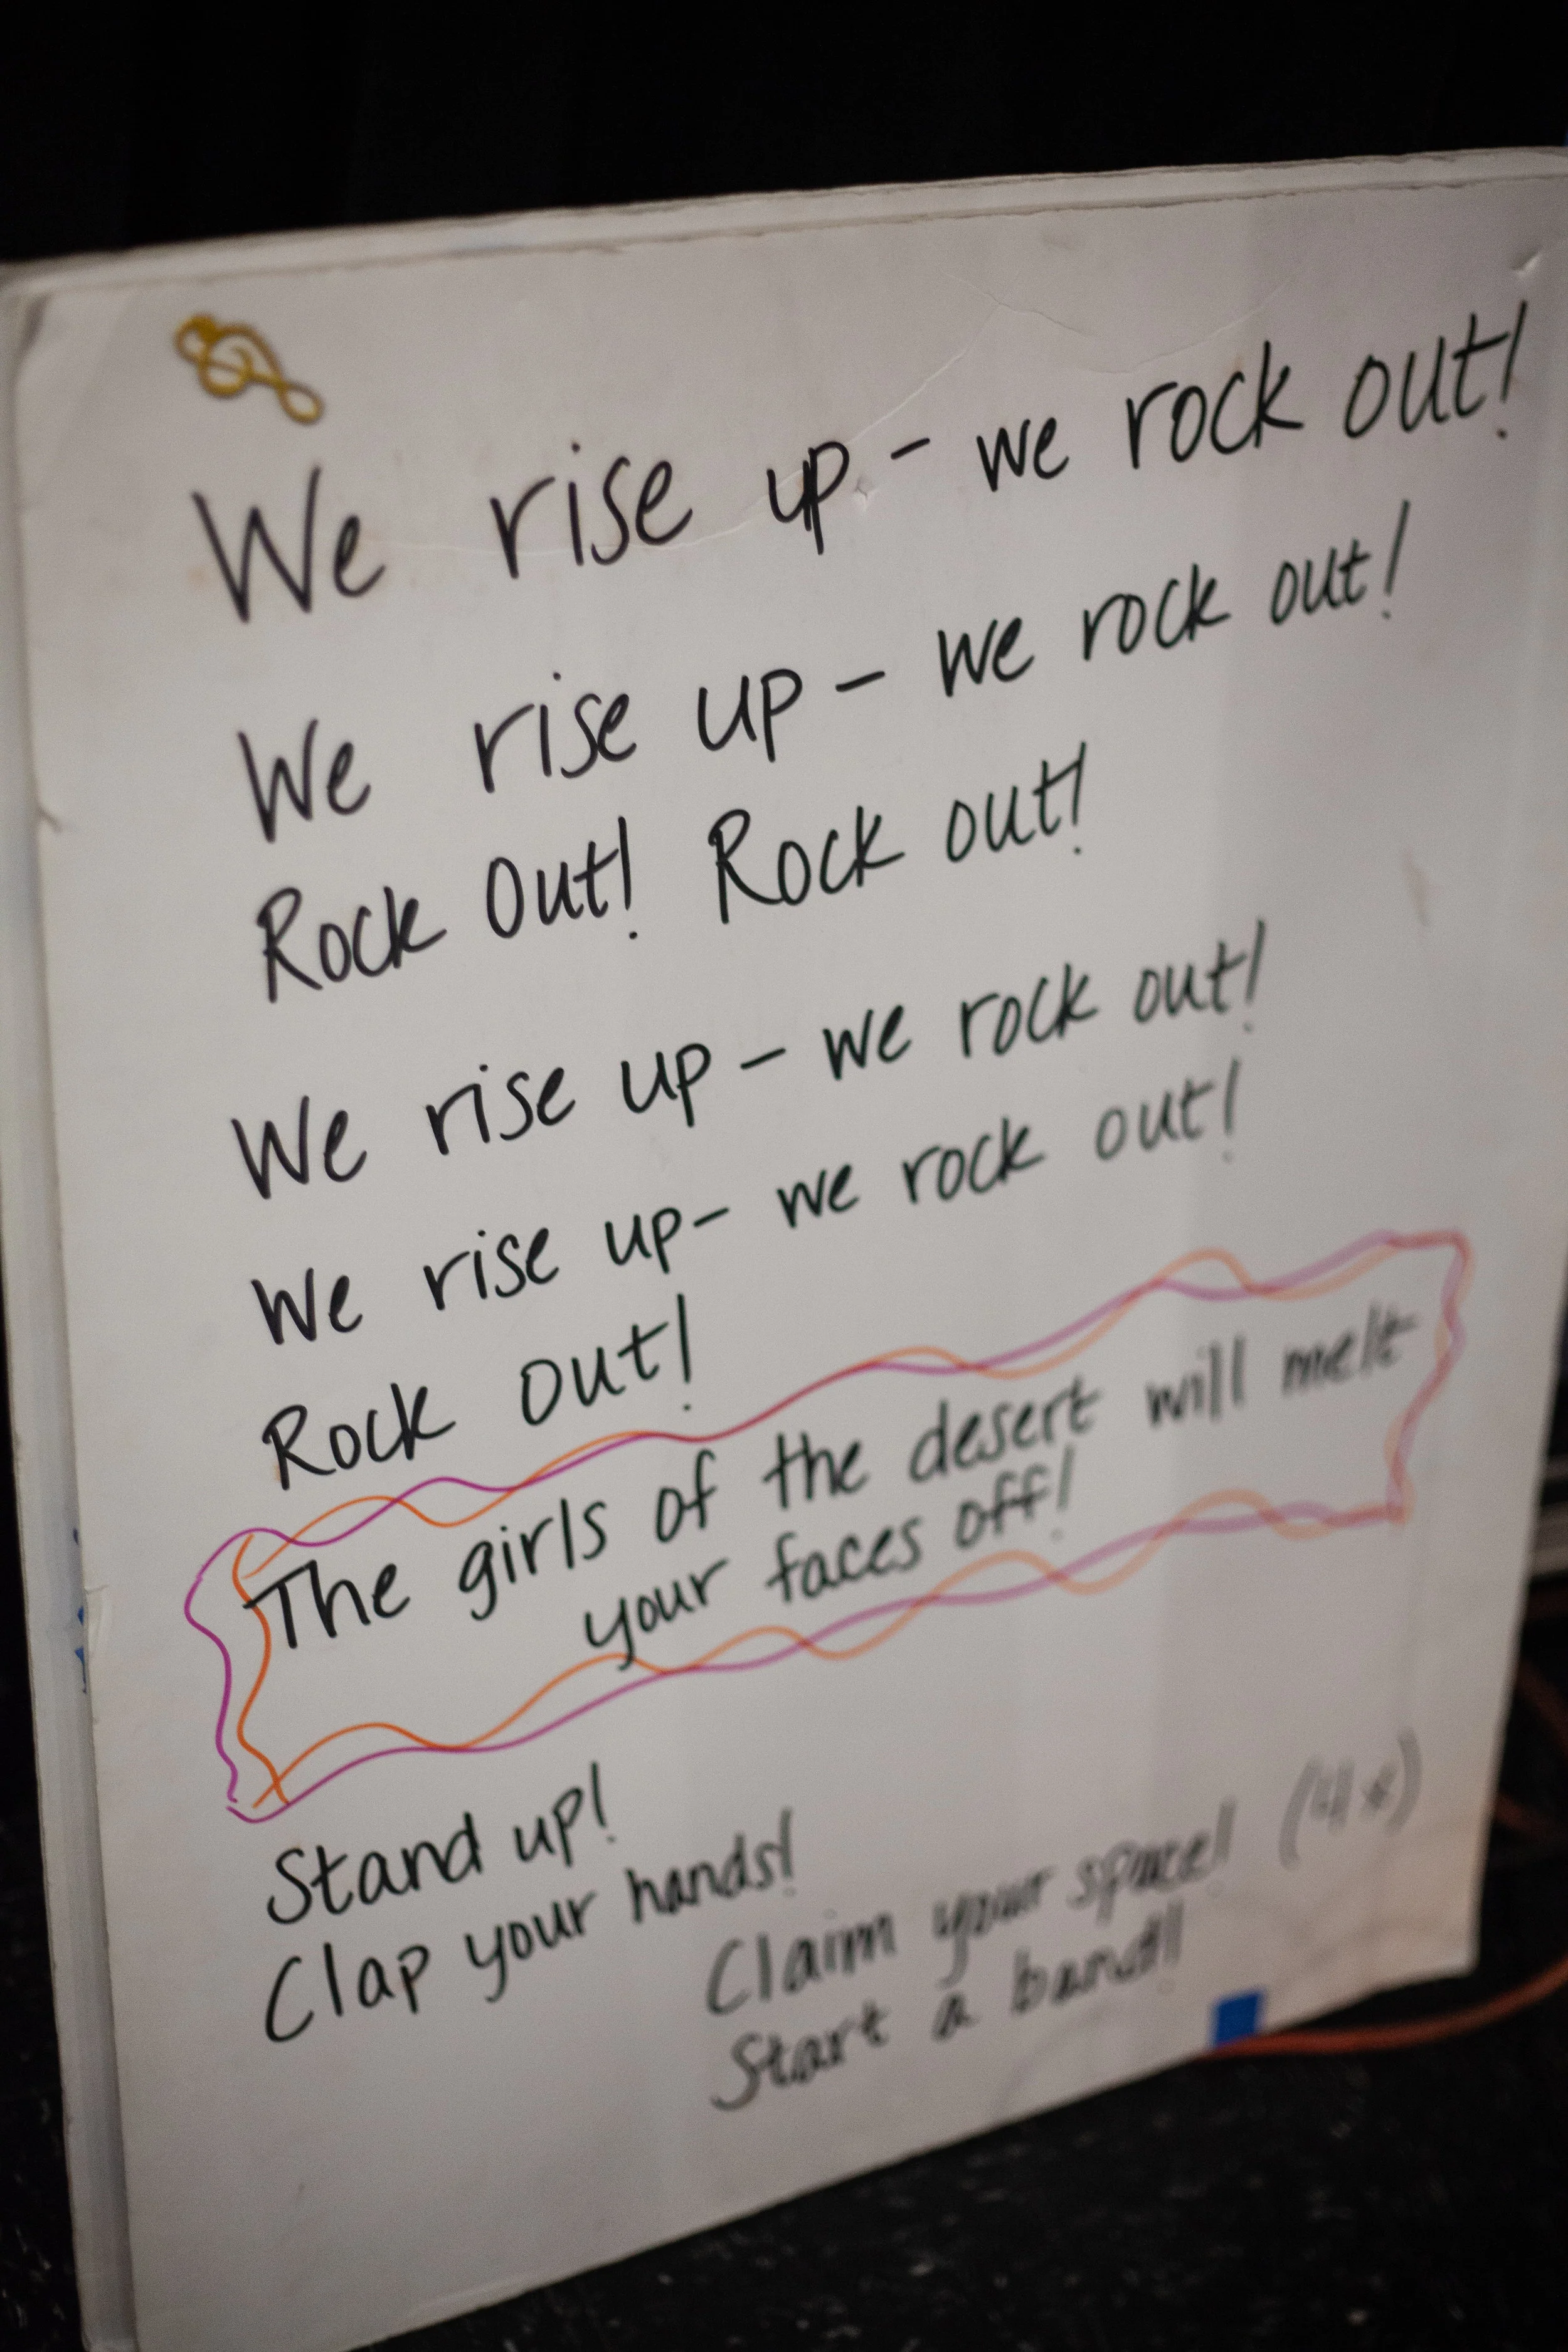 We rise up - we rock out!
We rise up - we rock out!
Rock Out! Rock out!
We rise up - we rock out!
We rise up - we rock out!
Rock out!
The girls of the desert will melt
your faces off!
Stand up!
Clap your hands!
Claim your space! (4x)
Start a band!